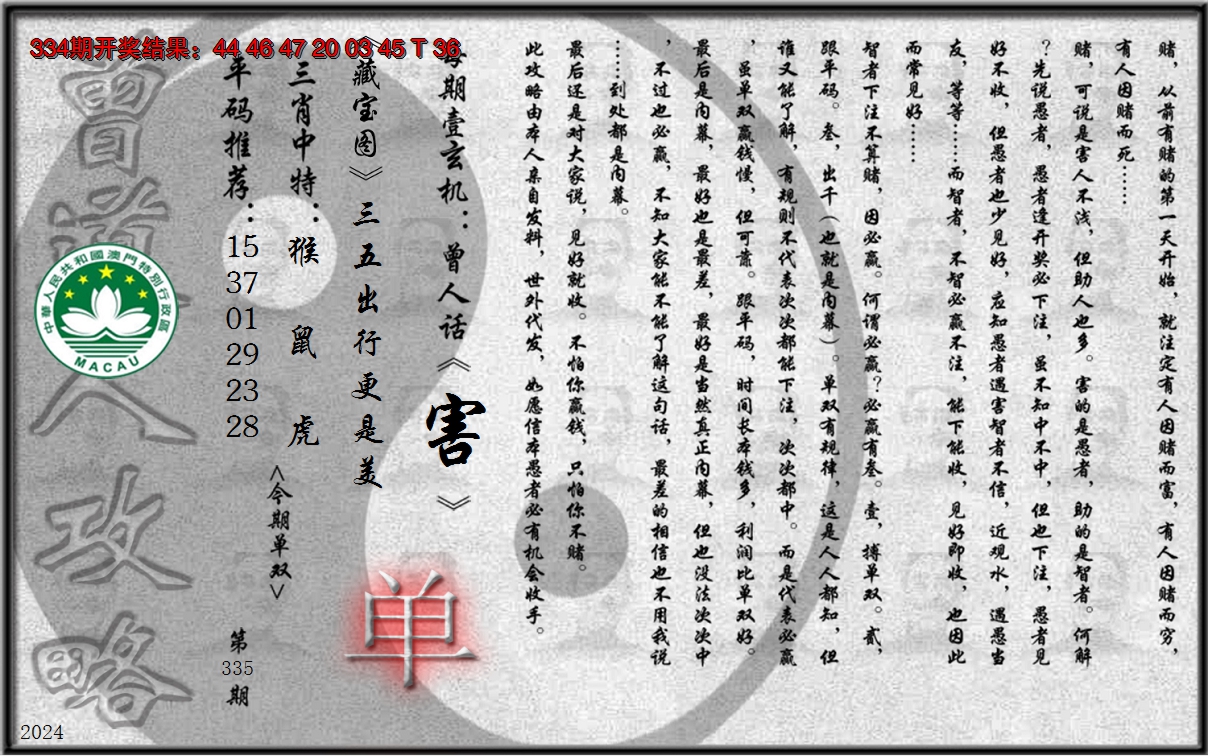 334期开奖结果：44 46 47 20 03 45 T 36
赌，从前有赌的第一天开始，就注定有人因赌而富，有人因赌而穷，
有人因赌而死……
赌，可说是害人不浅，但助人也多。害的是愚者，助的是智者。何解
？先说愚者，愚者逢开奖必下注，虽不知中不中，但也下注，愚者见
好不收，但愚者也少见好，应知愚者遇害智者不信，近观水，遇愚当
友，等等……而智者，不智必赢不注，能下能收，见好即收，也因此
而常见好……
智者下注不算赌，因必赢。何谓必赢？必赢有叁。壹，搏单双。贰，
跟平码。叁，出千（也就是内幕）。单双有规律，这是人人都知，但
谁又能了解，有规则不代表次次都能下注，次次都中。而是代表必赢
，虽单双赢钱慢，但可靠。跟平码，时间长本钱多，利润比单双好。
最后是内幕，最好也是最差，最好是当然真正内幕，但也没法次次中
，不过也必赢，不知大家能不能了解这句话，最差的相信也不用我说
……到处都是内幕。
最后还是对大家说，见好就收。不怕你赢钱，只怕你不赌。
此攻略由本人亲自发料，世外代发，如愿信本愚者必有机会收手。
每期壹玄机：曾人话《害》
《藏宝图》三五出行更是美
单
三肖中特：猴 鼠 虎
<今期单双>
平码推荐：15 37 01 29 23 28
第335期
曾道人攻略
中華人民共和國澳門特別行政區
MACAU
2024